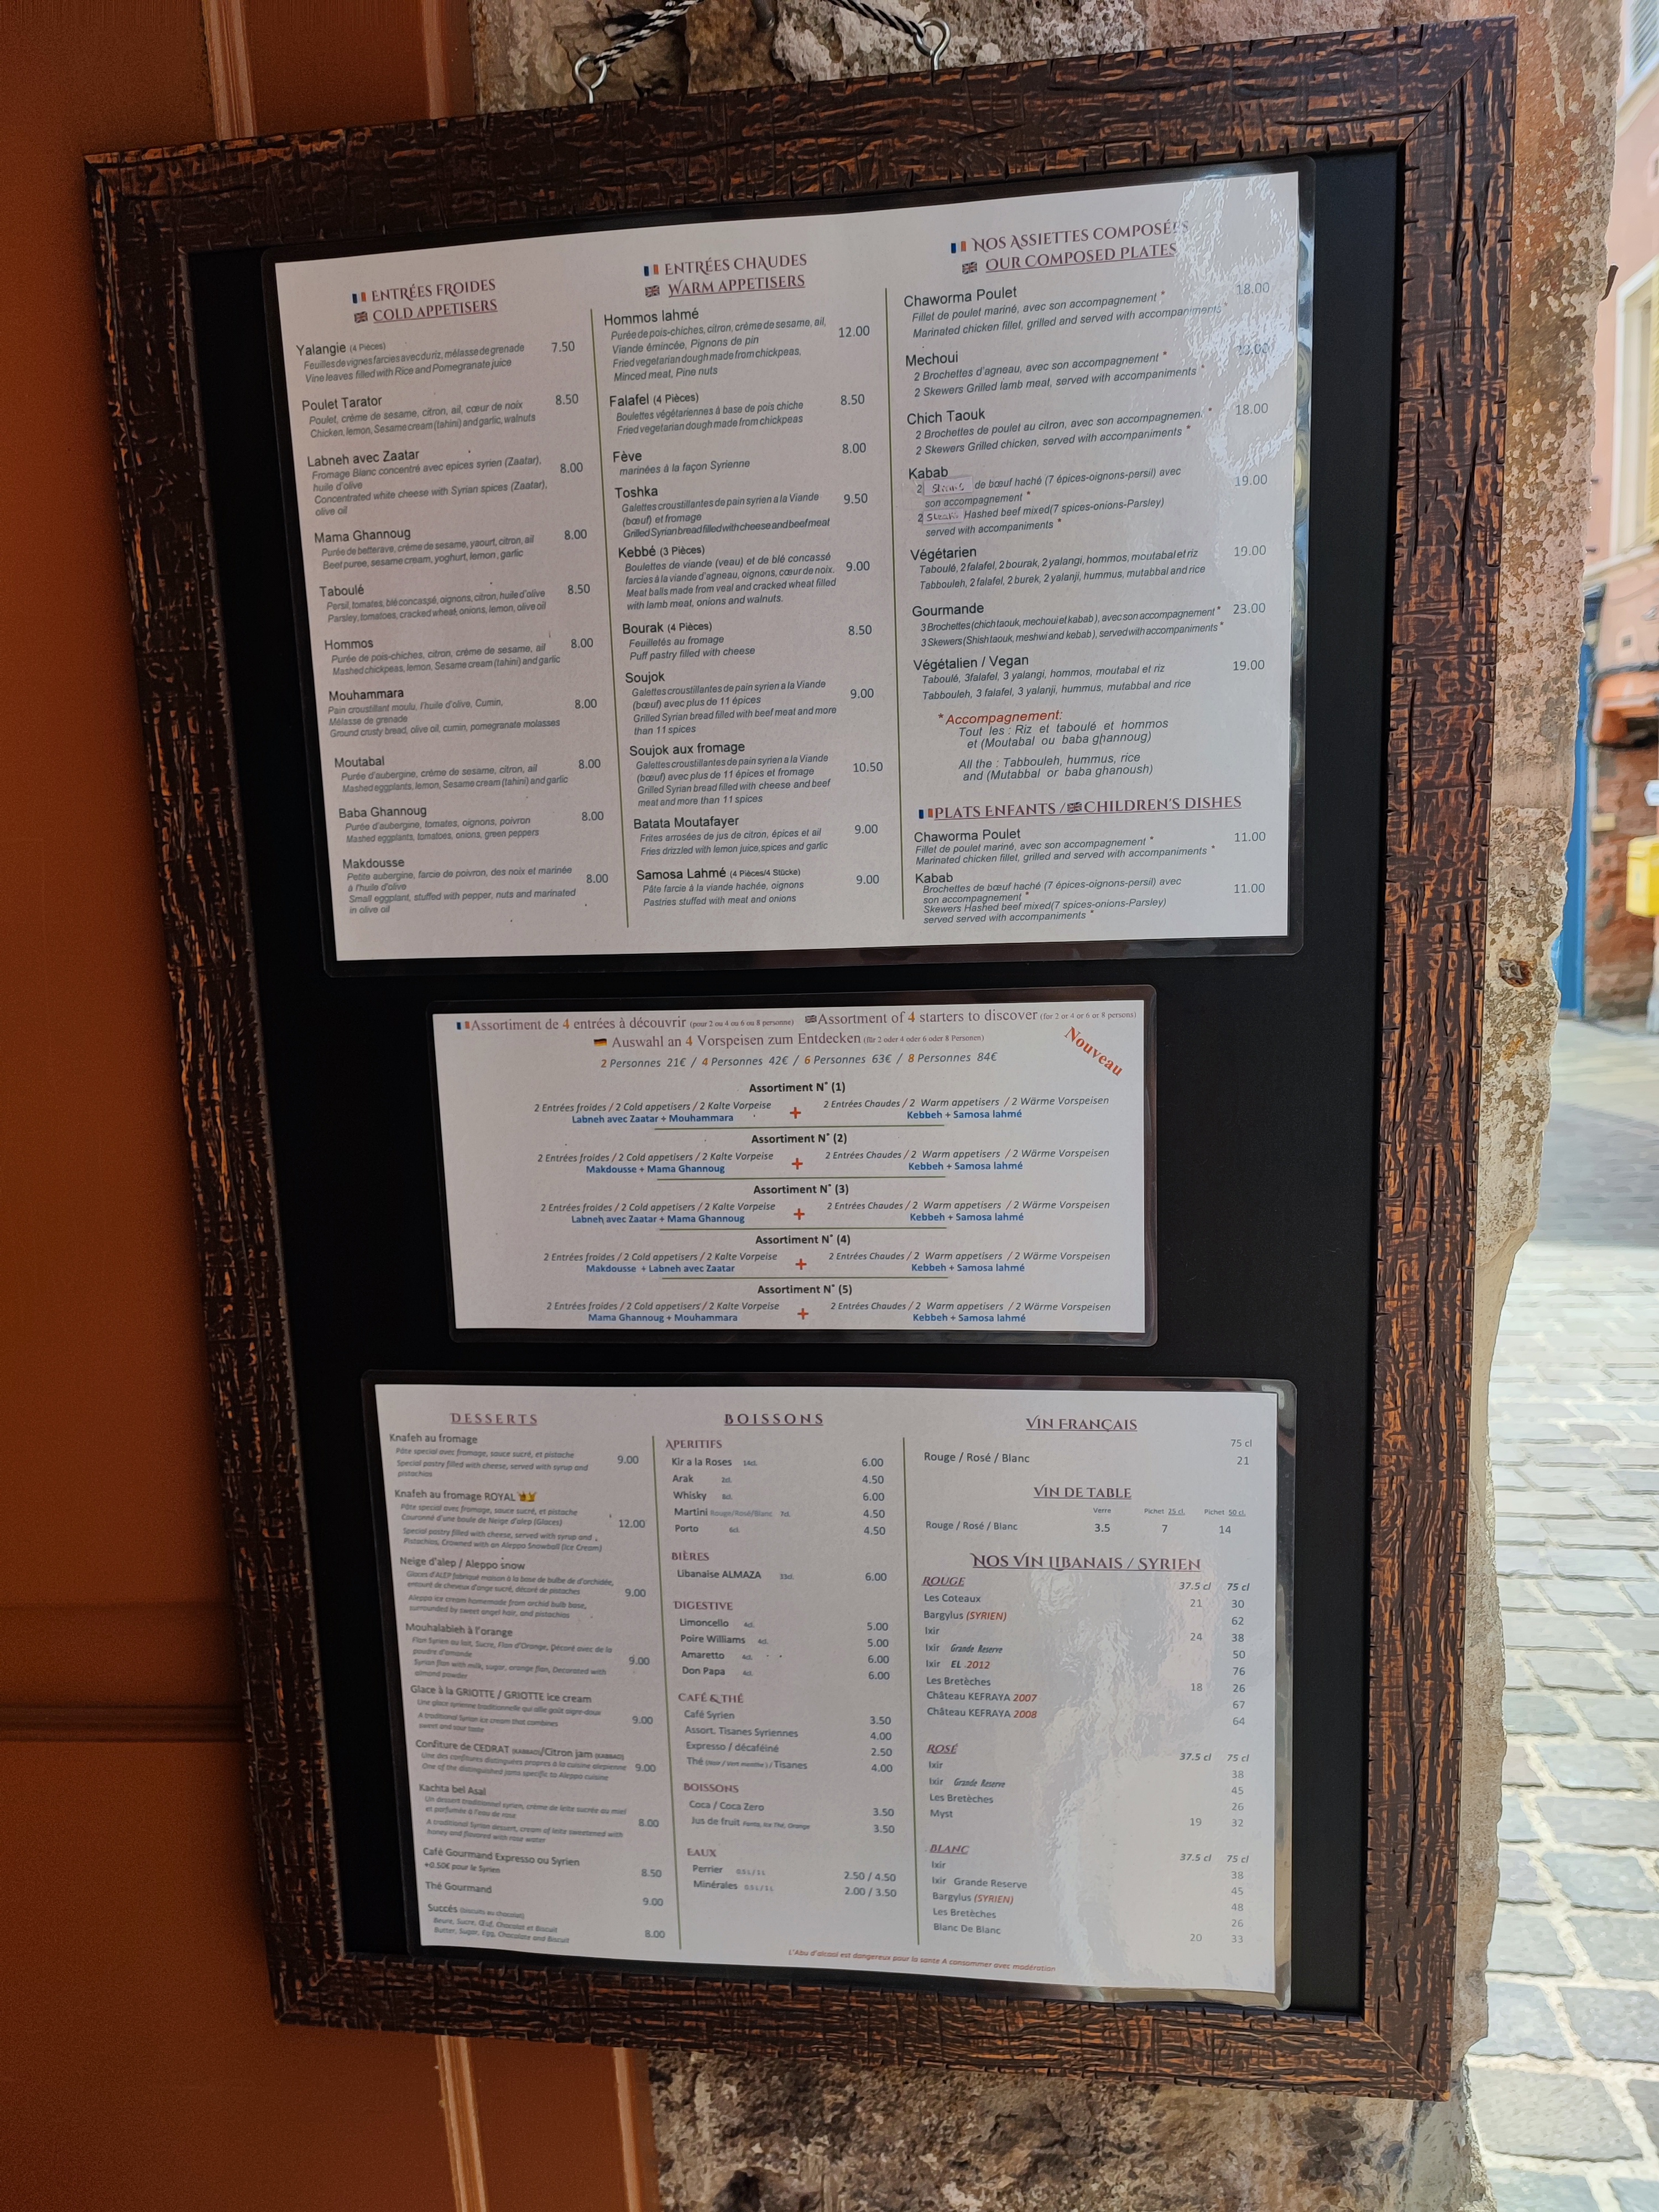 ENTRÉES FROIDES
COLD APPETISERS
Yalangie (4 Pièces) 7.50
Feuilles de vignes farcies avec du riz, mélasse de grenade
Vine leaves filled with Rice and Pomegranate juice
Poulet Tarator 8.50
Poulet, crème de sesame, citron, ail, cœur de noix
Chicken, lemon, Sesame cream (tahini) and garlic, walnuts
Labneh avec Zaatar
Fromage Blanc concentré avec epices syrien (Zaatar), 8.00
huile d'olive
Concentrated white cheese with Syrian spices (Zaatar),
olive oil
Mama Ghannoug 8.00
Purée de betterave, crème de sesame, yaourt, citron, ail
Beet puree, sesame cream, yoghurt, lemon, garlic
Taboulé 8.50
Persil, tomates, blé concassé, oignons, citron, huile d'olive
Parsley, tomatoes, cracked wheat, onions, lemon, olive oil
Hommos 8.00
Purée de pois-chiches, citron, crème de sesame, ail
Mashed chickpeas, lemon, Sesame cream (tahini) and garlic
Mouhammara
Pain croustillant moulu, l'huile d'olive, Cumin, 8.00
Mélasse de grenade
Ground crusty bread, olive oil, cumin, pomegranate molasses
Moutabal 8.00
Purée d'aubergine, crème de sesame, citron, ail
Mashed eggplants, lemon, Sesame cream (tahini) and garlic
Baba Ghannoug 8.00
Purée d'aubergine, tomates, oignons, poivron
Mashed eggplants, tomatoes, onions, green peppers
Makdousse
Petite aubergine, farcie de poivron, des noix et marinée 8.00
à l'huile d'olive
Small eggplant, stuffed with pepper, nuts and marinated
in olive oil
ENTRÉES CHAUDES
WARM APPETISERS
Hommos lahmé
Purée de pois-chiches, citron, crème de sesame, ail, 12.00
Viande émincée, Pignons de pin
Fried vegetarian dough made from chickpeas,
Minced meat, Pine nuts
Falafel (4 Pièces) 8.50
Boulettes végétariennes à base de pois chiche
Fried vegetarian dough made from chickpeas
Fève 8.00
marinées à la façon Syrienne
Toshka
Galettes croustillantes de pain syrien a la Viande 9.50
(bœuf) et fromage
Grilled Syrian bread filled with cheese and beef meat
Kebbé (3 Pièces)
Boulettes de viande (veau) et de blé concassé
farcies à la viande d'agneau, oignons, cœur de noix. 9.00
Meat balls made from veal and cracked wheat filled
with lamb meat, onions and walnuts.
Bourak (4 Pièces) 8.50
Feuilletés au fromage
Puff pastry filled with cheese
Soujok
Galettes croustillantes de pain syrien a la Viande 9.00
(bœuf) avec plus de 11 épices
Grilled Syrian bread filled with beef meat and more
than 11 spices
Soujok aux fromage
Galettes croustillantes de pain syrien a la Viande 10.50
(bœuf) avec plus de 11 épices et fromage
Grilled Syrian bread filled with cheese and beef
meat and more than 11 spices
Batata Moutafayer 9.00
Frites arrosées de jus de citron, épices et ail
Fries drizzled with lemon juice, spices and garlic
Samosa Lahmé (4 Pièces/4 Stücke) 9.00
Pâte farcie à la viande hachée, oignons
Pastries stuffed with meat and onions
NOS ASSIETTES COMPOSÉES
OUR COMPOSED PLATES
Chaworma Poulet 18.00
Fillet de poulet mariné, avec son accompagnement *
Marinated chicken fillet, grilled and served with accompaniments *
Mechoui
2 Brochettes d'agneau, avec son accompagnement *
2 Skewers Grilled lamb meat, served with accompaniments *
Chich Taouk 18.00
2 Brochettes de poulet au citron, avec son accompagnement *
2 Skewers Grilled chicken, served with accompaniments *
Kabab 19.00
2 Steaks de bœuf haché (7 épices-oignons-persil) avec
son accompagnement *
2 Steaks Hashed beef mixed(7 spices-onions-Parsley)
served with accompaniments *
Végétarien 19.00
Taboulé, 2 falafel, 2 bourak, 2 yalangi, hommos, moutabal et riz
Tabbouleh, 2 falafel, 2 burek, 2 yalanji, hummus, mutabbal and rice
Gourmande 23.00
3 Brochettes (chich taouk, mechoui et kabab), avec son accompagnement *
3 Skewers (Shish taouk, meshwi and kebab), served with accompaniments *
Végétalien / Vegan 19.00
Taboulé, 3falafel, 3 yalangi, hommos, moutabal et riz
Tabbouleh, 3 falafel, 3 yalanji, hummus, mutabbal and rice
* Accompagnement:
Tout les : Riz et taboulé et hommos
et (Moutabal ou baba ghannoug)
All the : Tabbouleh, hummus, rice
and (Mutabbal or baba ghanoush)
PLATS ENFANTS / CHILDREN'S DISHES
Chaworma Poulet 11.00
Fillet de poulet mariné, avec son accompagnement *
Marinated chicken fillet, grilled and served with accompaniments *
Kabab
Brochettes de bœuf haché (7 épices-oignons-persil) avec 11.00
son accompagnement *
Skewers Hashed beef mixed(7 spices-onions-Parsley)
served served with accompaniments *
Assortiment de 4 entrées à découvrir (pour 2 ou 4 ou 6 ou 8 personne) Assortment of 4 starters to discover (for 2 or 4 or 6 or 8 persons)
Auswahl an 4 Vorspeisen zum Entdecken (für 2 oder 4 oder 6 oder 8 Personen)
Nouveau
2 Personnes 21€ / 4 Personnes 42€ / 6 Personnes 63€ / 8 Personnes 84€
Assortiment N° (1)
2 Entrées froides / 2 Cold appetisers / 2 Kalte Vorpeise + 2 Entrées Chaudes / 2 Warm appetisers / 2 Wärme Vorspeisen
Labneh avec Zaatar + Mouhammara Kebbeh + Samosa lahmé
Assortiment N° (2)
2 Entrées froides / 2 Cold appetisers / 2 Kalte Vorpeise + 2 Entrées Chaudes / 2 Warm appetisers / 2 Wärme Vorspeisen
Makdousse + Mama Ghannoug Kebbeh + Samosa lahmé
Assortiment N° (3)
2 Entrées froides / 2 Cold appetisers / 2 Kalte Vorpeise + 2 Entrées Chaudes / 2 Warm appetisers / 2 Wärme Vorspeisen
Labneh avec Zaatar + Mama Ghannoug Kebbeh + Samosa lahmé
Assortiment N° (4)
2 Entrées froides / 2 Cold appetisers / 2 Kalte Vorpeise + 2 Entrées Chaudes / 2 Warm appetisers / 2 Wärme Vorspeisen
Makdousse + Labneh avec Zaatar Kebbeh + Samosa lahmé
Assortiment N° (5)
2 Entrées froides / 2 Cold appetisers / 2 Kalte Vorpeise + 2 Entrées Chaudes / 2 Warm appetisers / 2 Wärme Vorspeisen
Mama Ghannoug + Mouhammara Kebbeh + Samosa lahmé
DESSERTS
Knafeh au fromage
Pâte special avec fromage, sauce sucré, et pistache 9.00
Special pastry filled with cheese, served with syrup and
pistachios
Knafeh au fromage ROYAL
Pâte special avec fromage, sauce sucré, et pistache
Couronné d'une boule de Neige d'alep (Glaces) 12.00
Special pastry filled with cheese, served with syrup and
Pistachios, Crowned with an Aleppo Snowball (Ice Cream)
Neige d'alep / Aleppo snow
Glaces d'ALEP fabriqué maison à la base de bulbe de d'orchidée,
entouré de cheveux d'ange sucré, décoré de pistaches 9.00
Aleppo ice cream homemade from orchid bulb base,
surrounded by sweet angel hair, and pistachios
Mouhalabieh à l'orange
Flan Syrien au lait, Sucre, Flan d'Orange, Décoré avec de la
poudre d'amande 9.00
Syrian flan with milk, sugar, orange flan, Decorated with
almond powder
Glace à la GRIOTTE / GRIOTTE ice cream
Une glace syrienne traditionnelle qui allie goût aigre-doux
A traditional Syrian ice cream that combines 9.00
sweet and sour taste
Confiture de CEDRAT (KABBAD)/Citron jam (KABBAD)
Une des confitures distinguées propres à la cuisine aleppienne 9.00
One of the distinguished jams specific to Aleppo cuisine
Kachta bel Asal
Un dessert traditionnel syrien, crème de leite sucrée au miel
et parfumée à l'eau de rose 8.00
A traditional Syrian dessert, cream of leite sweetened with
honey and flavored with rose water
Café Gourmand Expresso ou Syrien
+0.50€ pour le Syrien 8.50
Thé Gourmand 9.00
Succés (biscuits au chocolat)
Beure, Sucre, Œuf, Chocolat et Biscuit 8.00
Butter, Sugar, Egg, Chocolate and Biscuit
BOISSONS
APERITIFS
Kir a la Roses 14cl. 6.00
Arak 2cl. 4.50
Whisky 8cl. 6.00
Martini Rouge/Rosé/Blanc 7cl. 4.50
Porto 6cl. 4.50
BIÈRES
Libanaise ALMAZA 33cl. 6.00
DIGESTIVE
Limoncello 4cl. 5.00
Poire Williams 4cl. 5.00
Amaretto 4cl. 6.00
Don Papa 4cl. 6.00
CAFÉ & THÉ
Café Syrien 3.50
Assort. Tisanes Syriennes 4.00
Expresso / décaféiné 2.50
Thé (Noir / Vert menthe) / Tisanes 4.00
BOISSONS
Coca / Coca Zero 3.50
Jus de fruit Fanta, Ice Thé, Orange 3.50
EAUX
Perrier 0.5 L / 1 L 2.50 / 4.50
Minérales 0.5 L / 1 L 2.00 / 3.50
VIN FRANÇAIS
75 cl
Rouge / Rosé / Blanc 21
VIN DE TABLE
Verre Pichet 25 cl. Pichet 50 cl.
Rouge / Rosé / Blanc 3.5 7 14
NOS VIN LIBANAIS / SYRIEN
ROUGE 37.5 cl 75 cl
Les Coteaux 21 30
Bargylus (SYRIEN) 62
Ixir 24 38
Ixir Grande Reserve 50
Ixir EL 2012 76
Les Bretèches 18 26
Château KEFRAYA 2007 67
Château KEFRAYA 2008 64
ROSÉ 37.5 cl 75 cl
Ixir 38
Ixir Grande Reserve 45
Les Bretèches 26
Myst 19 32
BLANC 37.5 cl 75 cl
Ixir 38
Ixir Grande Reserve 45
Bargylus (SYRIEN) 48
Les Bretèches 26
Blanc De Blanc 20 33
L'Abu d'alcool est dangereux pour la sante A consommer avec modération